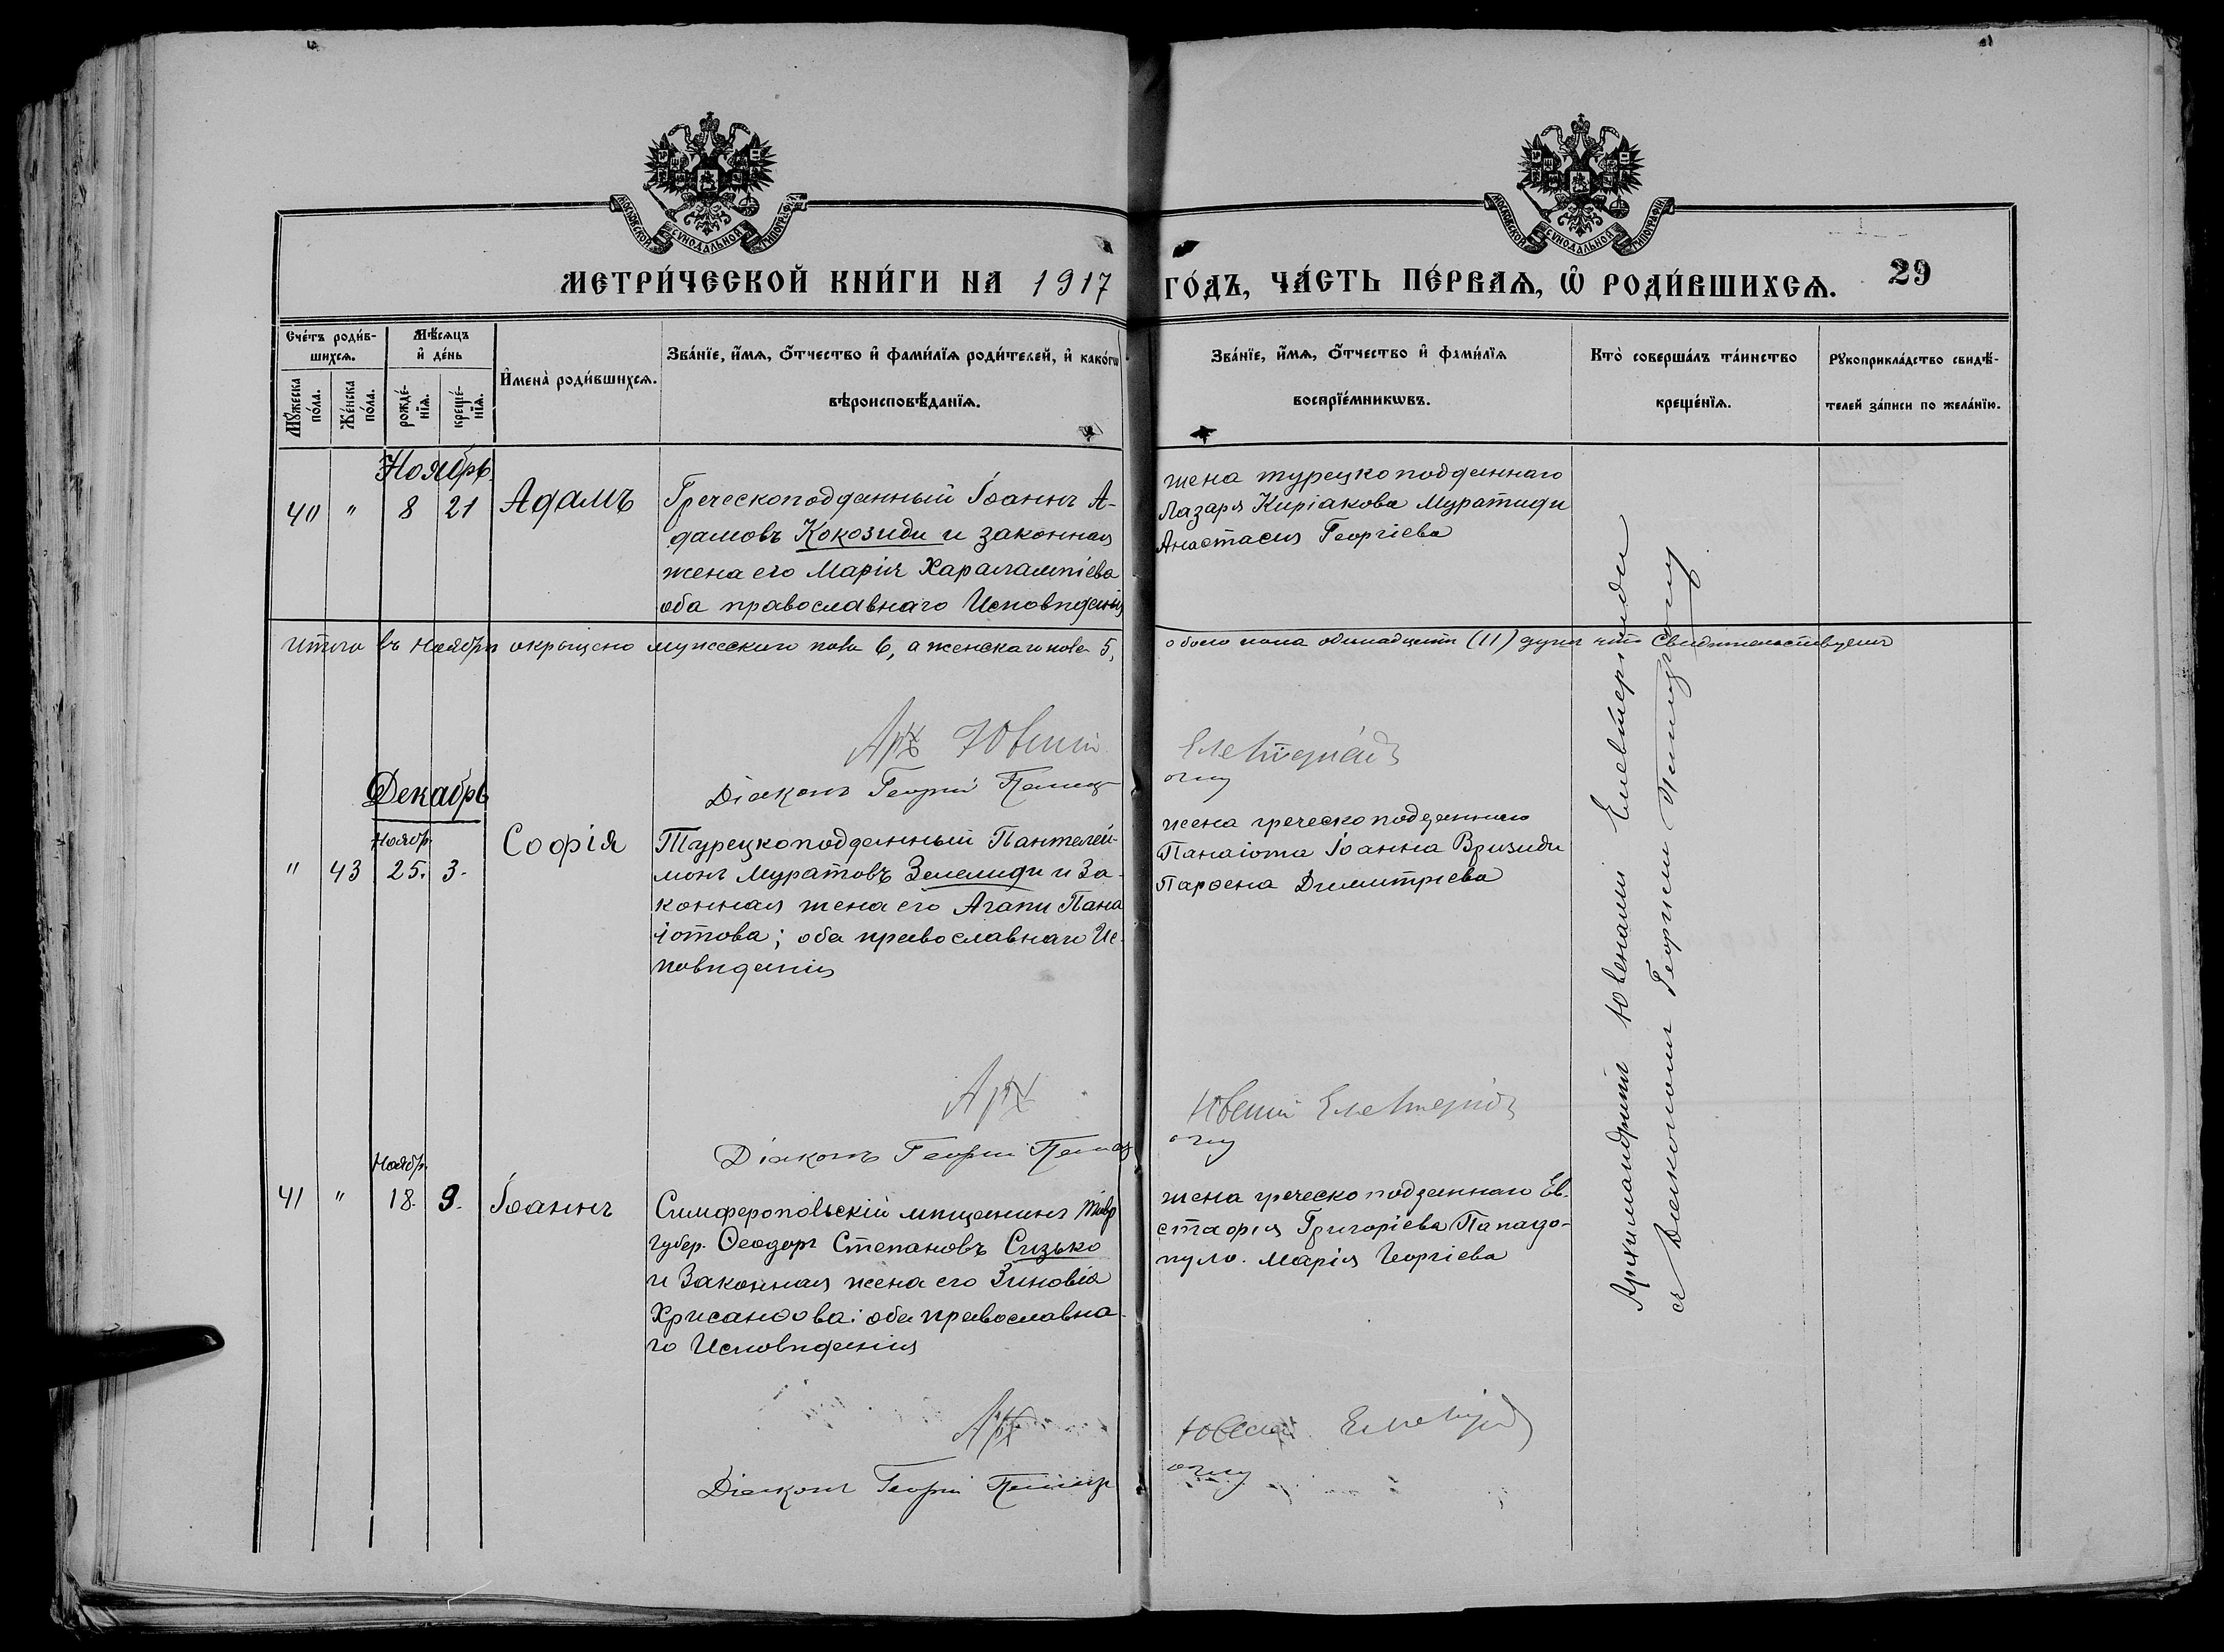 МОСКОВСКОЙ СѴНОДАЛЬНОЙ ТИПОГРАФІИ
МОСКОВСКОЙ СѴНОДАЛЬНОЙ ТИПОГРАФІИ
МЕТРИ́ЧЕСКОЙ КНИ́ГИ НА 1917 ГО́ДЪ, ЧА́СТЬ ПЕ́РВАѦ, Ѡ҆ РОДИ́ВШИХСѦ. 29
Сче́тъ роди́в-
шихсѧ.
Мѣ́сѧцъ
и҆ де́нь
Мꙋ́жеска
по́ла.
Же́нска
по́ла.
рожде́-
нїѧ.
креще́-
нїѧ.
И҆мена̀ роди́вшихсѧ.
Зва́нїе, и҆́мѧ, ѻ҆́тчество и҆ фами́лїѧ роди́телей, и҆ како́гѡ
вѣроисповѣ́данїѧ.
Зва́нїе, и҆́мѧ, ѻ҆́тчество и҆ фами́лїѧ
воспрїе́мникѡвъ.
Кто̀ соверша́лъ та́инство
креще́нїѧ.
Рꙋкоприкла́дство свидѣ́-
телей за́писи по жела́нїю.
Ноябрь.
40 " 8 21 Адамъ
Греческоподданный Іоаннъ А-
дамовъ Кокозиди и законная
жена его Марія Харалампіева
оба православнаго Исповѣданія
жена турецкоподданнаго
Лазаря Киріакова Муратиди
Анастасия Георгіева
Итого въ Ноябрѣ окрещено мужескаго пола 6, а женскаго пола 5, обоего пола одинадцать (11) душъ что Свидѣтельствуемъ
Арх Ювеній
Діаконъ Георгій
Декабрь
Ноябр.
" 43 25. 3. Софія
Турецкоподданный Пантелей-
монъ Муратовъ Зелелиди и За-
конная жена его Агапи Пана
іотова; оба православнаго Ис-
повѣданія
жена греческоподданнаго
Панаіота Іоанна Вризиди
Парѳена Димитріева
Арх Ювеній
Діаконъ Георгій
Ноябр.
41 " 18. 9. Іоаннъ
Симферопольскій мѣщанинъ Тавр
губер. Ѳеодоръ Степановъ Сизько
и Законная жена его Зиновіа
Хрисанѳова: оба православна-
го Исповѣданія
жена греческоподданнаго Ев-
стафія Григоріева Пападо-
пуло. Марія Георгіева
Арх
Діаконъ Георгій
Архимандритъ Ювеналій Елевѳеріади
съ Діакономъ Георгіемъ